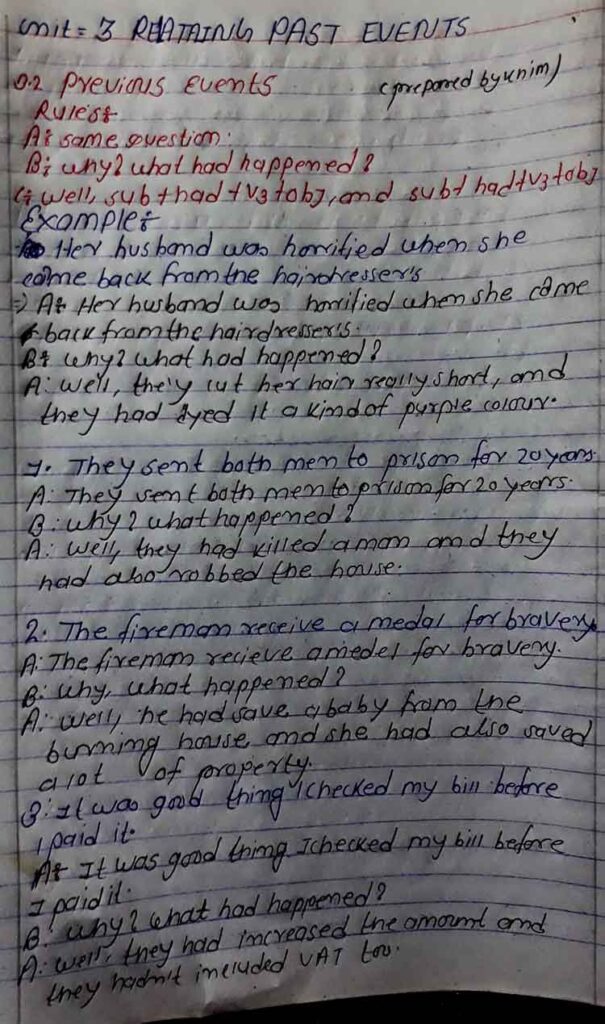 Unit = 3 REATAING PAST EVENTS
Q.2 Previous Events (prepared by unim)
Rules:
A: same question.
B: why? what had happened?
C: well, sub + had + v3 + obj, and sub + had + v3 + obj
Example:
Her husband was horrified when she
came back from the hairdresser's
⇒ A: Her husband was horrified when she came
back from the hairdresser's.
B: why? what had happened?
A: well, they cut her hair really short, and
they had dyed it a kind of purple colour.
1. They sent both men to prison for 20 years.
A: They sent both men to prison for 20 years.
B: why? what happened?
A: well, they had killed a man and they
had also robbed the house.
2. The fireman receive a medal for bravery.
A: The fireman recieve a medel for bravery.
B: why, what happened?
A: well, he had save a baby from the
burning house, and she had also saved
a lot of property.
3: It was good thing I checked my bill before
I paid it.
A: It was good thing I checked my bill before
I paid it.
B: why? what had happened?
A: well, they had increased the amount and
they hadn't included VAT too.